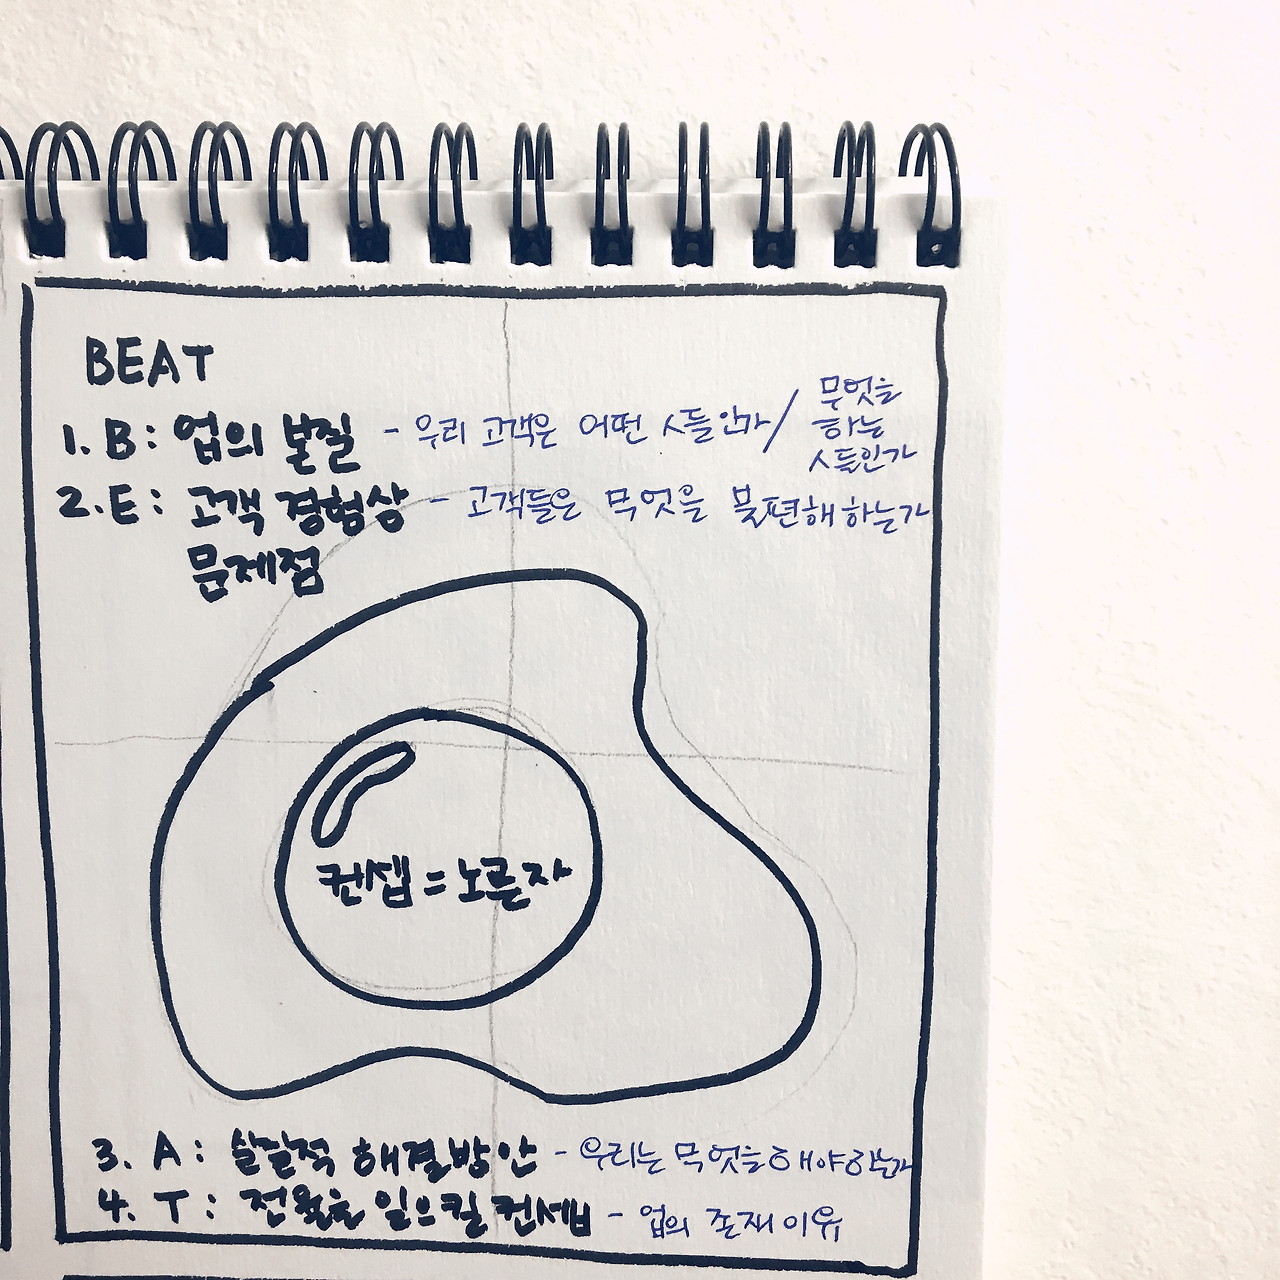 BEAT
1. B : 업의 본질 - 우리 고객은 어떤 사람들인가 / 무엇을
하는
사람들인가
2. E : 고객 경험상 - 고객들은 무엇을 불편해하는가
문제점
컨셉 = 노른자
3. A : 실질적 해결방안 - 우리는 무엇을 해야하는가
4. T : 전율을 일으킬 컨셉 - 업의 존재이유